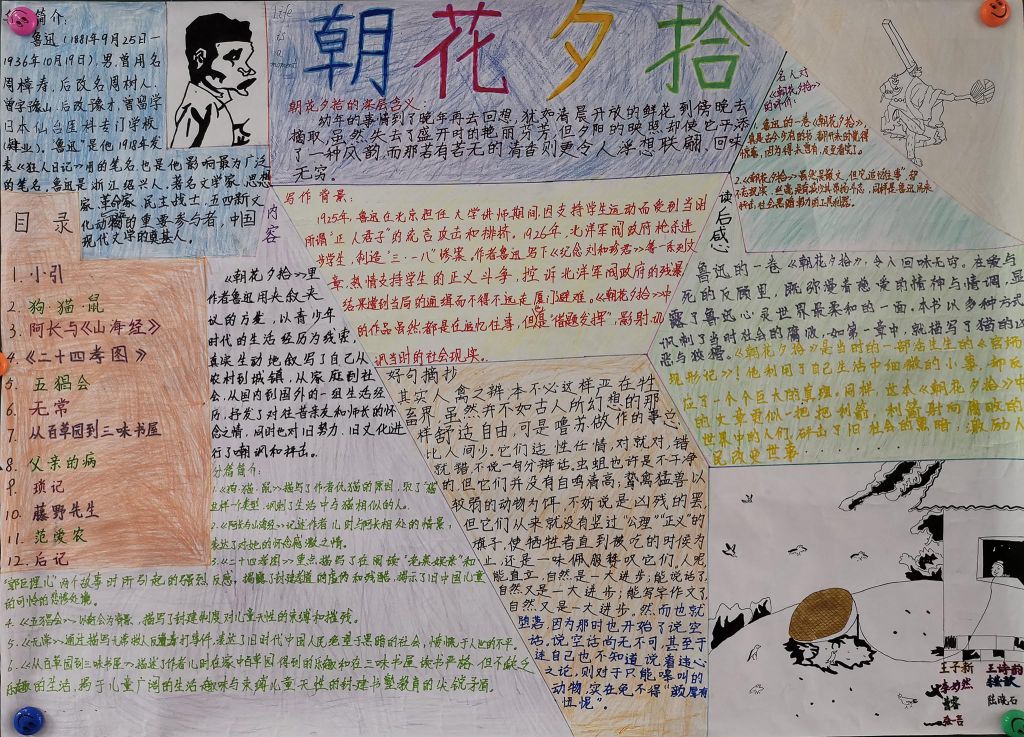 简介:
鲁迅(1881年9月25日一
1936年10月19日),男,曾用名
周樟寿,后改名周树人,
曾字豫山,后改豫才,曾留学
日本仙台医科专门学校
(肄业)。"鲁迅"是他1918年发
表《狂人日记》用的笔名,也是他影响最为广泛
的笔名,鲁迅是浙江绍兴人。著名文学家,思想
家,革命家,民主战士,五四新文
化动的重要参与者,中国
现代文学的奠基人。
Life
is
a
moment
朝花夕拾
朝花夕拾的深层含义:
幼年的事情到了晚年再去回想,犹如清晨开放的鲜花到傍晚去
摘取,虽然失去了盛开时的艳丽芬芳,但夕阳的映照却使它平添
了一种风韵,而那若有若无的清香则更令人浮想联翩、回味
无穷。
名人对
《朝花夕拾》
的评价:
鲁迅的一卷《朝花夕拾》,
2.《朝花夕拾》虽然是散文,但它追忆往事,却
目录
1.小引
2.狗·猫·鼠
3.阿长与《山海经》
4.《二十四孝图》
5.五猖会
6.无常
7.从百草园到三味书屋
8.父亲的病
9.琐记
10.藤野先生
11.范爱农
12.后记
内容
《朝花夕拾》里
作者鲁迅用夹叙夹
议的方法,以青少年
时代的生活经历为线索,
真实生动地叙写了自己从
农村到城镇,从家庭到社
会,从国内到国外的一组生活经
历,抒发了对往昔亲友和师长的怀
念之情,同时也对旧势力、旧文化进
行了嘲讽和抨击。
写作背景:
1925年,鲁迅在北京担任大学讲师期间,因支持学生运动而受到当时
所谓"正人君子"的流言攻击和排挤。1926年,北洋军阀政府枪杀进
步学生,制造"三·一八"惨案。作者鲁迅写下《纪念刘和珍君》等一系列文
章,热情支持学生的正义斗争,控诉北洋军阀政府的残暴,
结果遭到当局的通缉而不得不远走厦门避难。《朝花夕拾》中
的作品虽然都是在追忆往事,但是"借题发挥",影射、讥
讽当时的社会现实。
读后感
鲁迅的一卷《朝花夕拾》,令人回味无穷。在爱与
死的反顾里,既弥漫着慈爱的精神与情调,显
露了鲁迅心灵世界最柔和的一面,本书以多种方式
讽刺了当时社会的腐败,如第一章中,就描写了猫的凶
恶与狡猾。《朝花夕拾》是当时的一部活生生的《官场
现形记》!他利用了自己生活中细微的小事,却反
应了一个个巨大的真理。同样,这本《朝花夕拾》中
的文章更似一把把利箭,利箭射向腐败的
世界中的人们,研击了旧社会的黑暗,激励人
民改变世事
好句摘抄
其实人禽之辨,本不必这样严。在牲
畜界,虽然并不如古人所幻想的那
样舒适自由,可是噜苏做作的事总
比人间少。它们适性任情,对就对,错
就错,不说一句分辩话。虫蛆也许是不干净
的,但它们并没有自鸣清高;鸷禽猛兽以
较弱的动物为饵,不妨说是凶残的罢,
但它们从来就没有竖过"公理""正义"的
旗子,使牺牲者直到被吃的时候为
止,还是一味佩服赞叹它们。人呢,
能直立,自然是一大进步;能说话了,
自然又是一大进步;能写字作文了,
自然又是一大进步。然而也就
堕落,因为那时也开始了说空
话。说空话尚无不可,甚至于
连自己也不知道说着违心
之论,则对于只能嗥叫的
动物,实在免不得"颜厚有
忸怩"。
分者简介:
1.《狗·猫·鼠》描写了作者仇猫的原因,取了"猫"
这样一个类型,讽刺了生活中与猫相似的人。
2.《阿长与山海经》记述作者儿时与阿长相处的情景,
表达了对她的怀念感激之情。
3.《二十四孝图》重点描写了在阅读"老莱娱亲"和
"郭巨埋儿"两个故事时所引起的强烈反感,揭露了封建孝道的虚伪和残酷,揭示了旧中国儿童
的可怜的悲惨处境。
4.《五猖会》以赶会为背景,描写了封建制度对儿童天性的束缚和摧残。
5.《无常》通过描写无常救人反遭毒打事件,表达了旧时代中国人民绝望于黑暗的社会,愤慨于人世的不平。
6.《从百草园到三味书屋》描述了作者儿时在家中百草园得到的乐趣和在三味书屋读书严格但不缺乏
乐趣的生活,揭示儿童广阔的生活趣味与束缚儿童天性的封建书塾教育的尖锐矛盾。
王子新